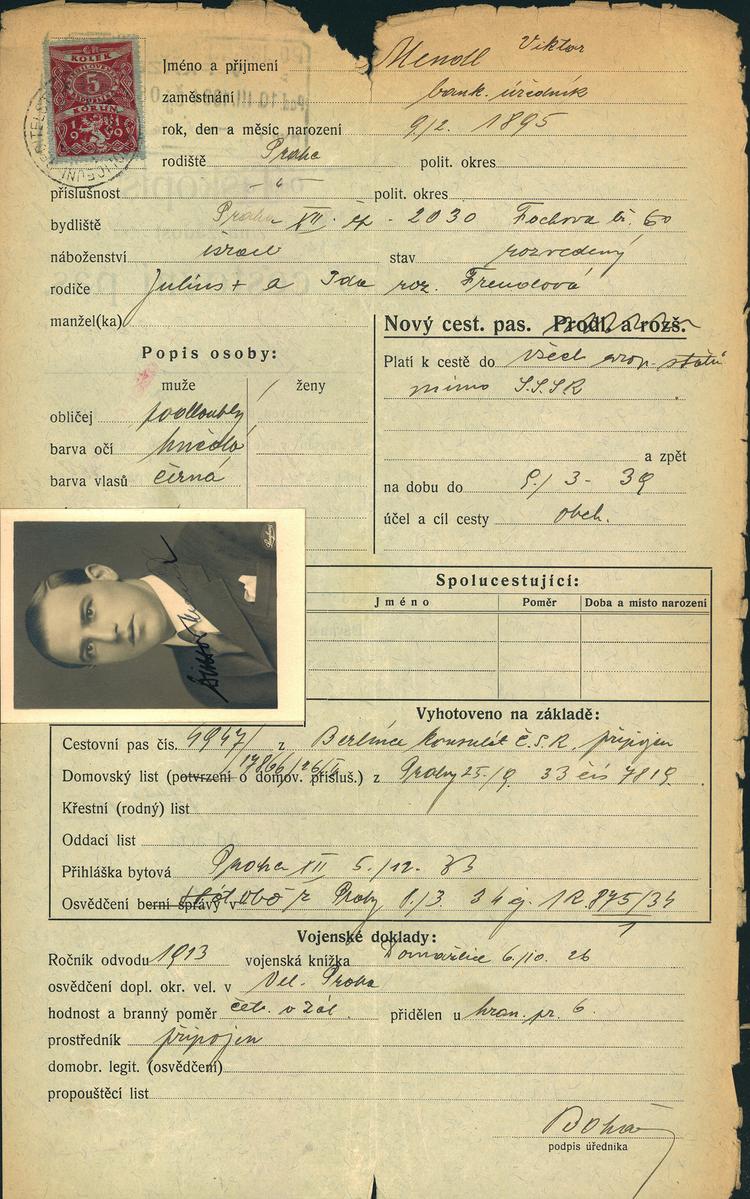 KOLEK
5
KORUN
1919
Jméno a příjmení Mendl Viktor
zaměstnání bank. úředník
rok, den a měsíc narození 9/2. 1895
rodiště Praha polit. okres
příslušnost - " - polit. okres
bydliště Praha XII. čp - 2030 Fochova tř. 60
náboženství israel stav rozvedený
rodiče Julius + a Ida roz. Freudová
manžel(ka)
Nový cest. pas. Prodl. a rozš.
Platí k cestě do všech evrop. států
mimo S.S.S.R
a zpět
na dobu do 9./3 - 39
účel a cíl cesty obch.
Popis osoby:
muže ženy
obličej podlouhlý
barva očí hnědá
barva vlasů černá
Spolucestující:
Jméno Poměr Doba a místo narození
Vyhotoveno na základě:
Cestovní pas čís. 4947/ z Berlína konsulát Č.S.R. připojen
Domovský list (potvrzení o domov. přísluš.) z Prahy 25./9. 33 čís 7819.
Křestní (rodný) list
Oddací list
Přihláška bytová Praha XII 5./12. 33
Osvědčení berní správy v Prahy 8./3. 34 čj. 1R. 875/34
Vojenské doklady:
Ročník odvodu 1913 vojenská knížka Domažlice 6./10. 26
osvědčení dopl. okr. vel. v Vel. Praha
hodnost a branný poměr čet. v zál. přidělen u hran. pr. 6.
prostředník připojen
domobr. legit. (osvědčení)
propouštěcí list
podpis úředníka